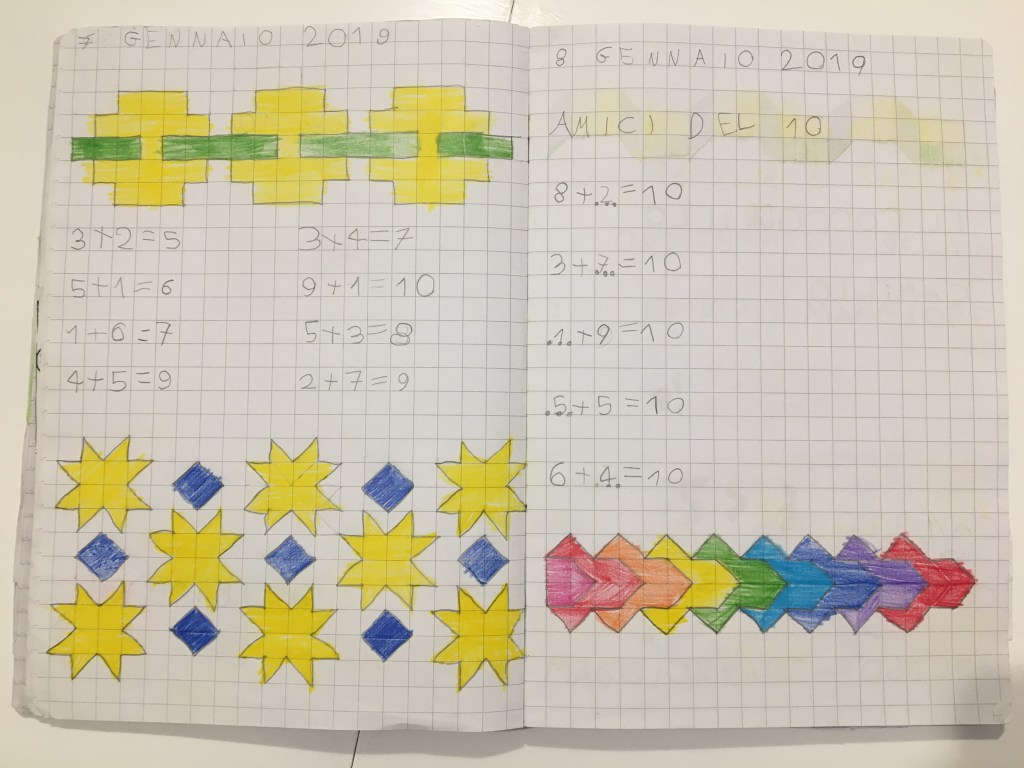 7 GENNAIO 2019
3+2=5 3+4=7
5+1=6 9+1=10
1+6=7 5+3=8
4+5=9 2+7=9
8 GENNAIO 2019
AMICI DEL 10
8+.2.=10
3+.7.=10
.1.+9=10
.5.+5=10
6+.4.=10